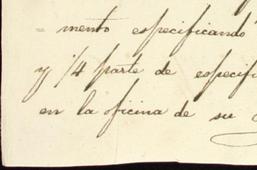 = mento especificando
y 1/4 parte de especifi
en la oficina de su